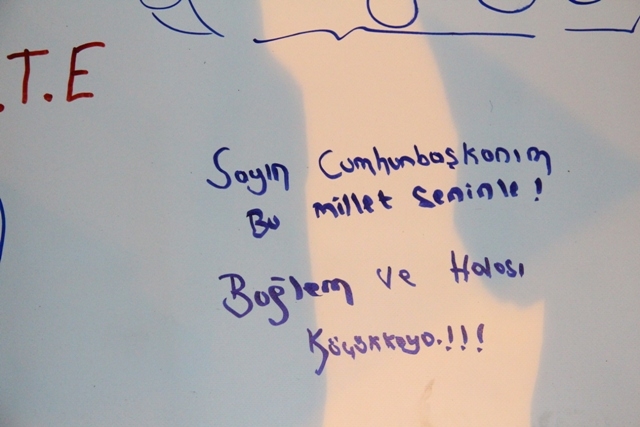 .T.E
Sayın Cumhurbaşkanım
Bu millet seninle!
Bağlem ve Halası
Küçükkaya.!!!